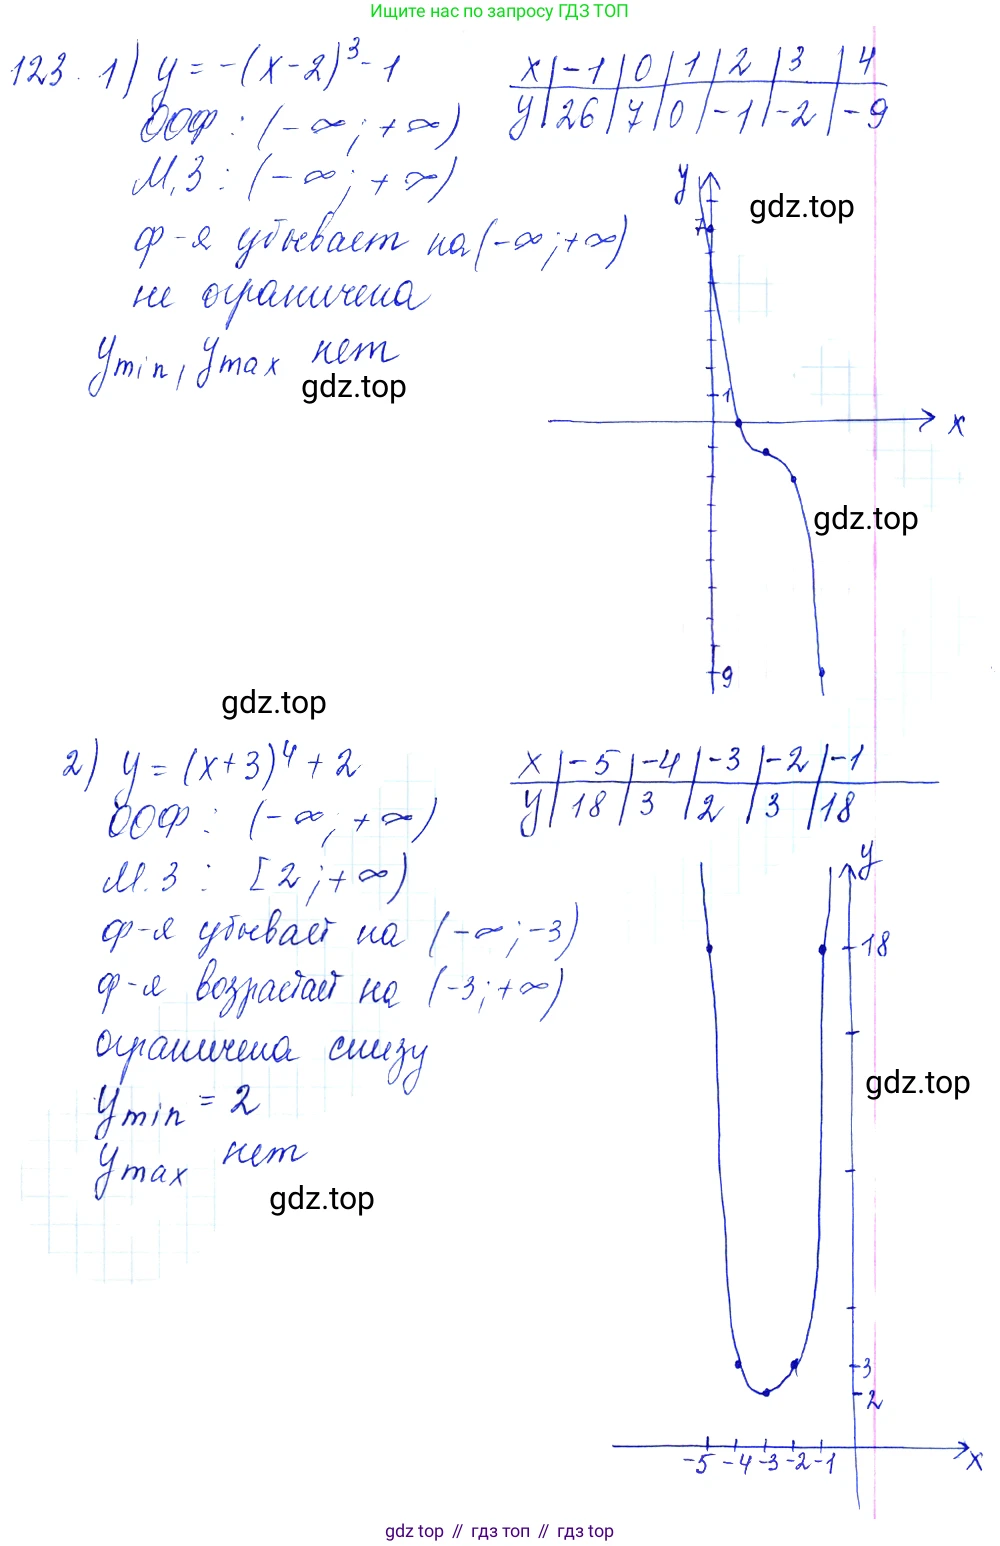 Ищите нас по запросу ГДЗ ТОП
123. 1) y = -(x-2)³-1
x | -1 | 0 | 1 | 2 | 3 | 4
y | 26 | 7 | 0 | -1 | -2 | -9
ООФ: (-∞; +∞)
М.З: (-∞; +∞)
ф-я убывает на (-∞; +∞)
не ограничена
ymin, ymax нет
gdz.top
y
gdz.top
7
1
x
gdz.top
9
gdz.top
2) y = (x+3)⁴ + 2
x | -5 | -4 | -3 | -2 | -1
y | 18 | 3 | 2 | 3 | 18
ООФ: (-∞; +∞)
М.З: [2; +∞)
ф-я убывает на (-∞; -3)
ф-я возрастает на (-3; +∞)
ограничена снизу
ymin = 2
ymax нет
gdz.top
y
18
gdz.top
3
2
-5 -4 -3 -2 -1
x
gdz top // гдз топ // gdz top